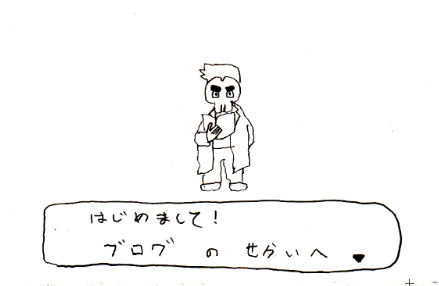 はじめまして!
ブログ の せかいへ